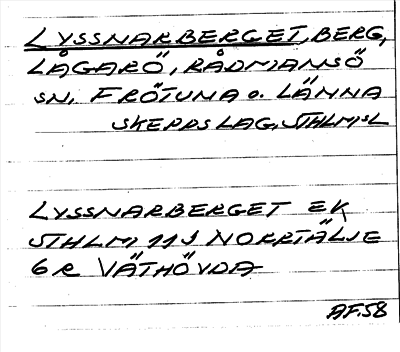 LYSSNARBERGET, BERG,
LÅGARÖ, RÅDMANSÖ
SN, FRÖTUNA o. LÄNNA
SKEPPSLAG, STHLMSL
LYSSNARBERGET EK
STHLM 11J NORRTÄLJE
6 R VÄTHÖVDA
AF.58